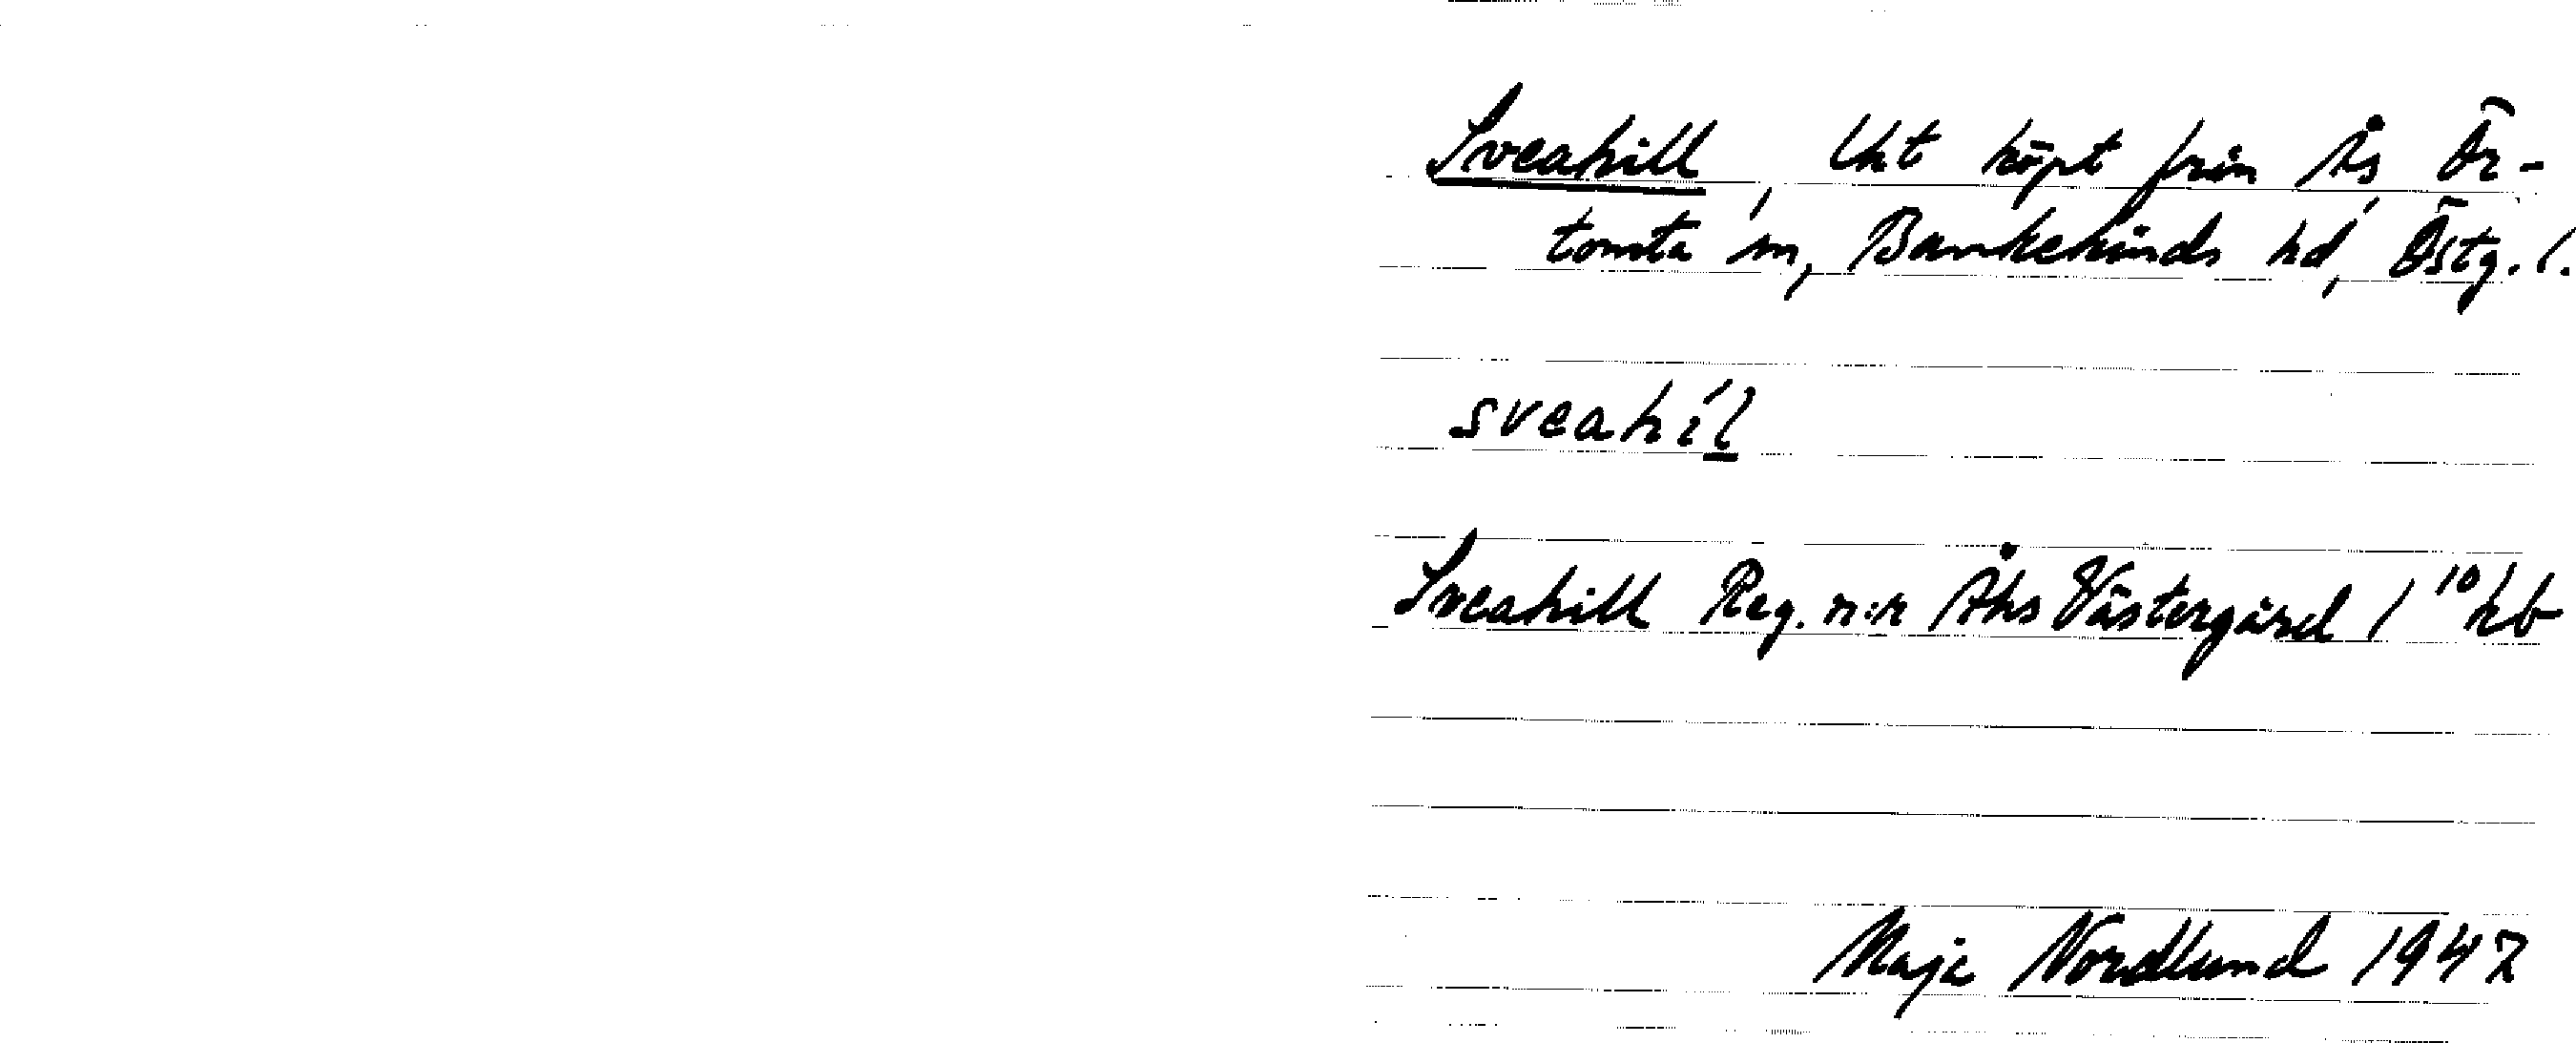 Sveahill, lht köpt från Ås, Ör-
tomta sn, Bankekinds hd, Östg. l.
sveahíl
Sveahill Reg. n:r Åhs Västergård 1 10 hb
Maja Nordlund 1947